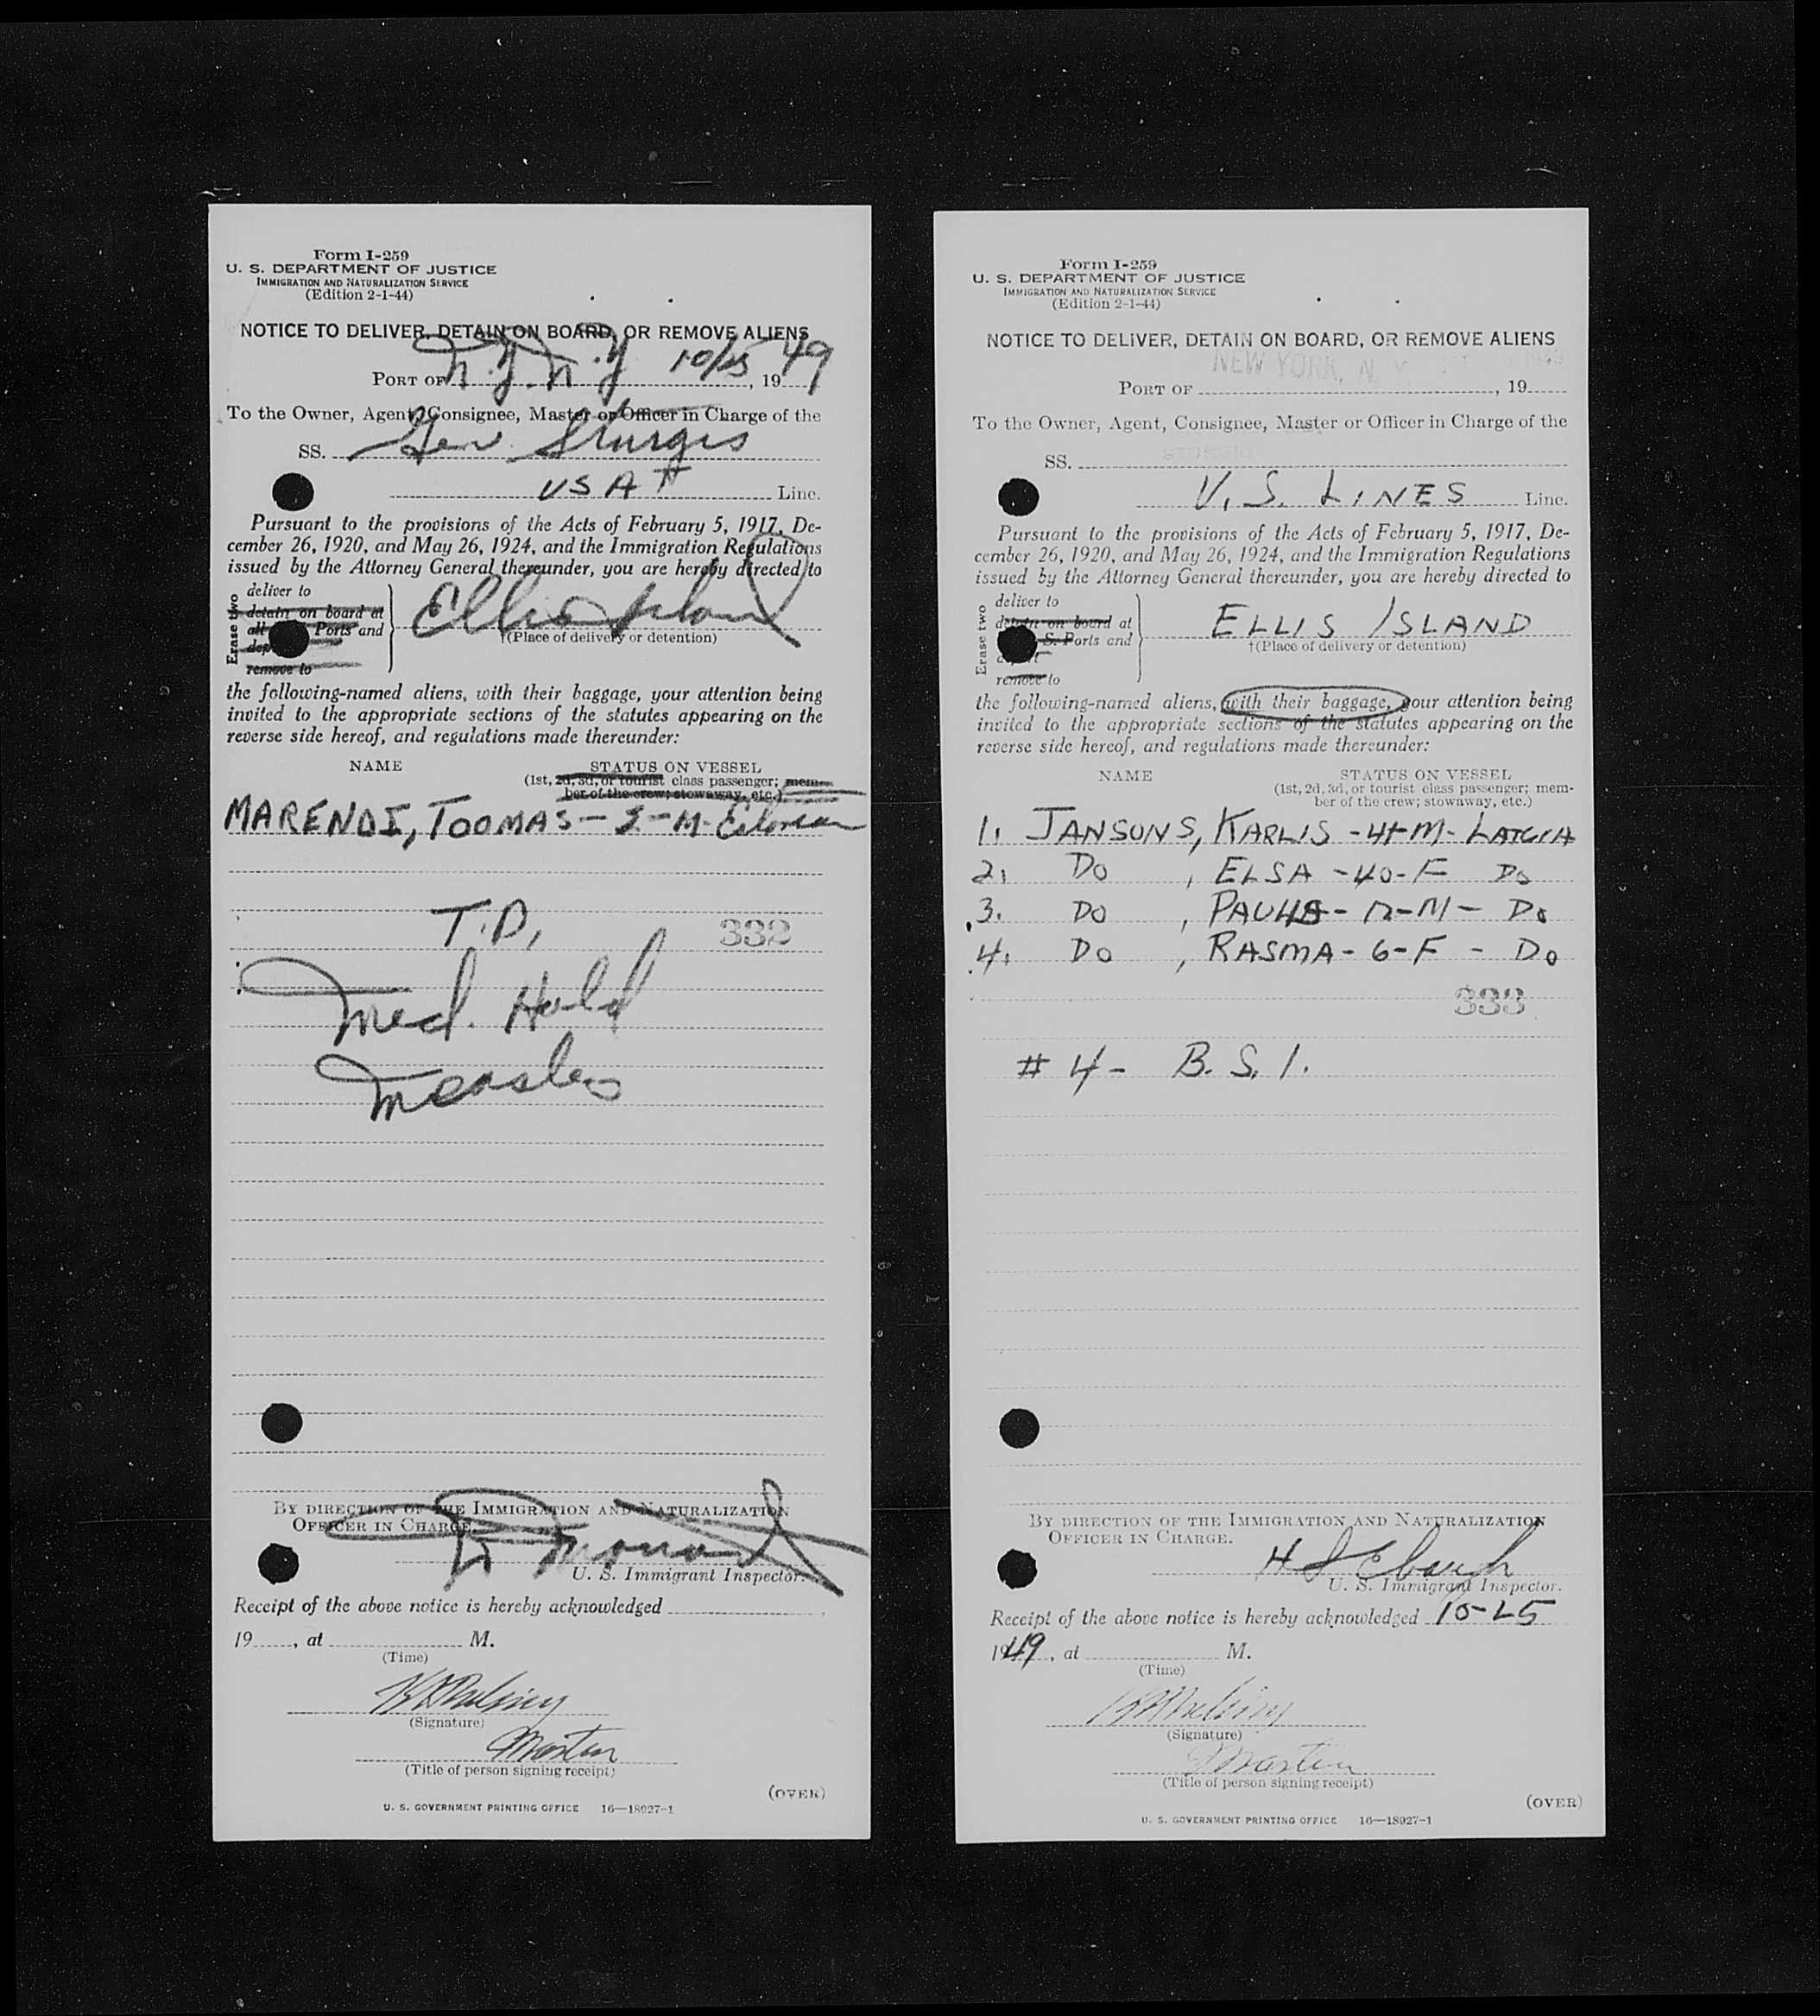 Form I-259
U. S. DEPARTMENT OF JUSTICE
IMMIGRATION AND NATURALIZATION SERVICE
(Edition 2-1-44)
NOTICE TO DELIVER, DETAIN ON BOARD, OR REMOVE ALIENS
PORT OF N.Y. N.Y 10/25, 1949
To the Owner, Agent, Consignee, Master or Officer in Charge of the
SS. Gen. Sturgis
USAT Line.
Pursuant to the provisions of the Acts of February 5, 1917, De-
cember 26, 1920, and May 26, 1924, and the Immigration Regulations
issued by the Attorney General thereunder, you are hereby directed to
Erase two
deliver to
detain on board at
all Ports and
dep
remove to
Ellis Island
†(Place of delivery or detention)
the following-named aliens, with their baggage, your attention being
invited to the appropriate sections of the statutes appearing on the
reverse side hereof, and regulations made thereunder:
NAME STATUS ON VESSEL
(1st, 2d, 3d, or tourist class passenger; mem-
ber of the crew; stowaway, etc.)
MARENDI, TOOMAS - - M -
T.D,
332
Med. Hold
Measles
BY DIRECTION OF THE IMMIGRATION AND NATURALIZATION
OFFICER IN CHARGE.
U. S. Immigrant Inspector.
Receipt of the above notice is hereby acknowledged
19 , at M.
(Time)
(Signature)
Master
(Title of person signing receipt)
(OVER)
U. S. GOVERNMENT PRINTING OFFICE 16—18927-1
Form I-259
U. S. DEPARTMENT OF JUSTICE
IMMIGRATION AND NATURALIZATION SERVICE
(Edition 2-1-44)
NOTICE TO DELIVER, DETAIN ON BOARD, OR REMOVE ALIENS
NEW YORK, N. Y.
PORT OF , 19
To the Owner, Agent, Consignee, Master or Officer in Charge of the
SS.
U.S. LINES Line.
Pursuant to the provisions of the Acts of February 5, 1917, De-
cember 26, 1920, and May 26, 1924, and the Immigration Regulations
issued by the Attorney General thereunder, you are hereby directed to
Erase two
deliver to
detain on board at
S. Ports and
remove to
ELLIS ISLAND
†(Place of delivery or detention)
the following-named aliens, with their baggage, your attention being
invited to the appropriate sections of the statutes appearing on the
reverse side hereof, and regulations made thereunder:
NAME STATUS ON VESSEL
(1st, 2d, 3d, or tourist class passenger; mem-
ber of the crew; stowaway, etc.)
1. JANSONS, KARLIS - 41-M- LATVIA
2. DO , ELSA - 40-F DO
3. DO , - 12-M - DO
4. DO , RASMA - 6-F - DO
333
# 4 - B.S.I.
BY DIRECTION OF THE IMMIGRATION AND NATURALIZATION
OFFICER IN CHARGE.
U. S. Immigrant Inspector.
Receipt of the above notice is hereby acknowledged 10-25
1949, at M.
(Time)
(Signature)
Master
(Title of person signing receipt)
(OVER)
U. S. GOVERNMENT PRINTING OFFICE 16—18927-1